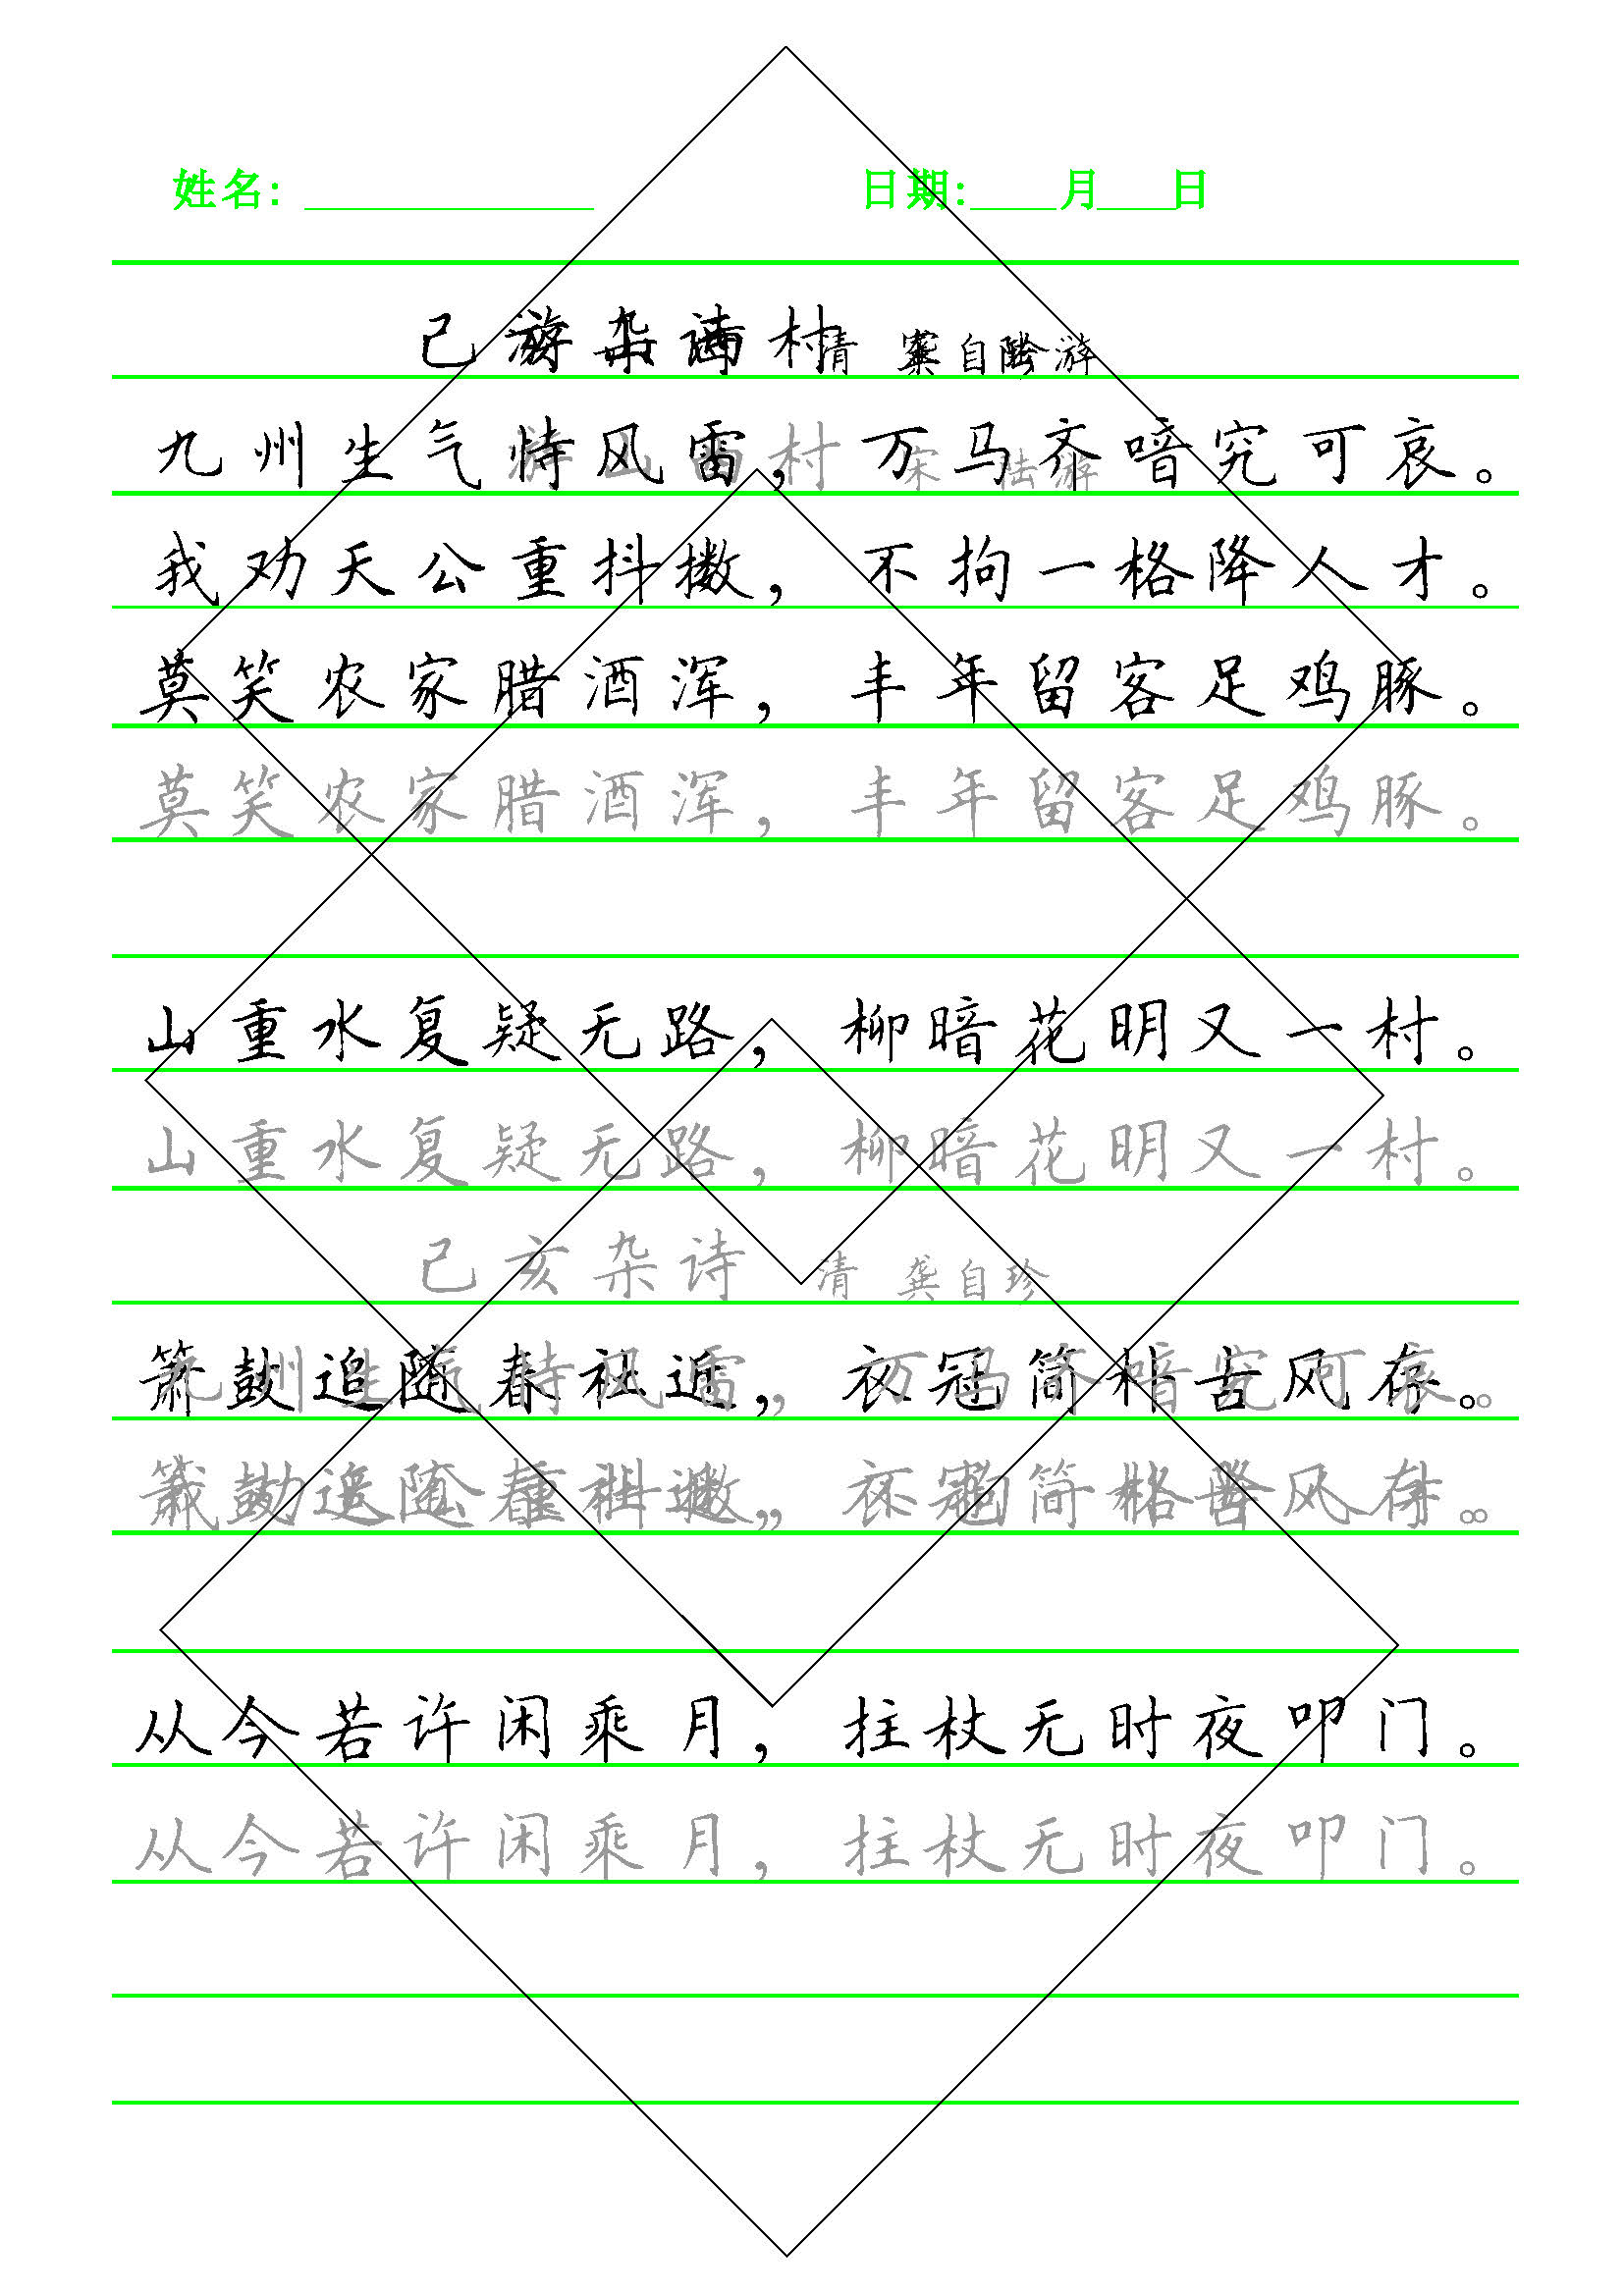 姓名: 日期: 月 日
己亥杂诗 清 龚自珍
游山西村 宋 陆游
九州生气恃风雷，万马齐喑究可哀。
游山西村 宋 陆游
我劝天公重抖擞，不拘一格降人才。
莫笑农家腊酒浑，丰年留客足鸡豚。
莫笑农家腊酒浑，丰年留客足鸡豚。
山重水复疑无路，柳暗花明又一村。
山重水复疑无路，柳暗花明又一村。
己亥杂诗 清 龚自珍
箫鼓追随春社近，衣冠简朴古风存。
九州生气恃风雷，万马齐喑究可哀。
箫鼓追随春社近，衣冠简朴古风存。
我劝天公重抖擞，不拘一格降人才。
从今若许闲乘月，拄杖无时夜叩门。
从今若许闲乘月，拄杖无时夜叩门。